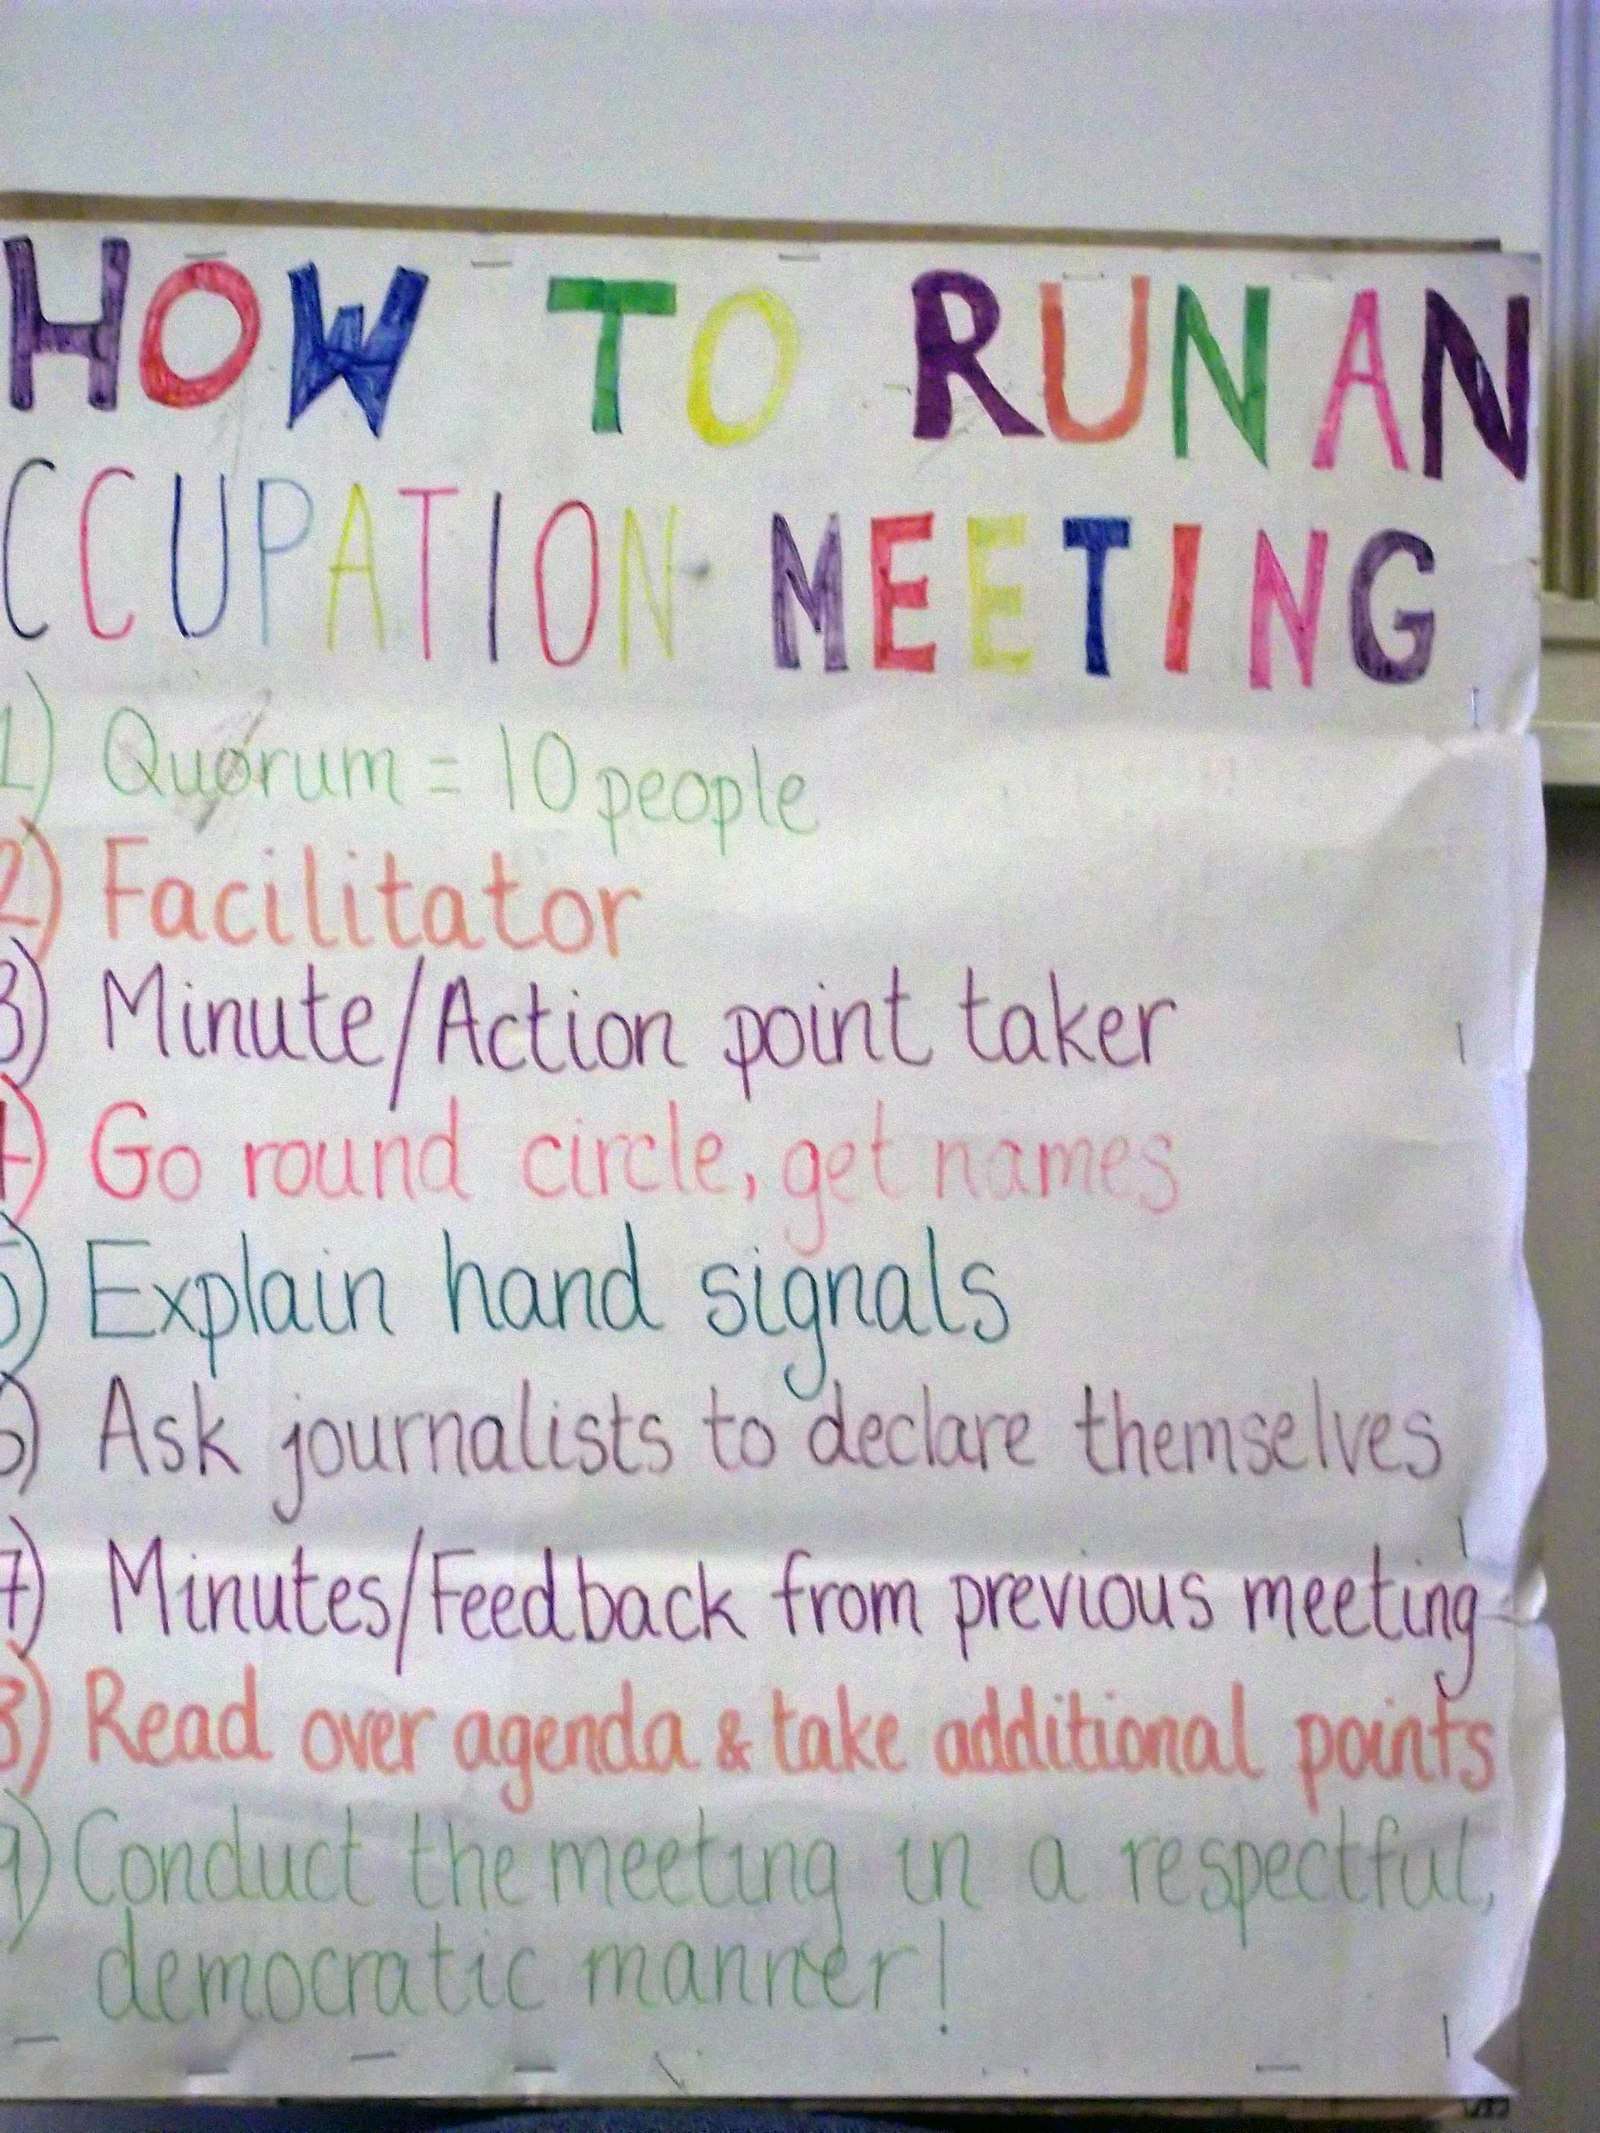 HOW TO RUN AN
CCUPATION MEETING
1) Quorum = 10 people
2) Facilitator
3) Minute/Action point taker
4) Go round circle, get names
5) Explain hand signals
6) Ask journalists to declare themselves
7) Minutes/Feedback from previous meeting
8) Read over agenda & take additional points
9) Conduct the meeting in a respectful,
democratic manner!